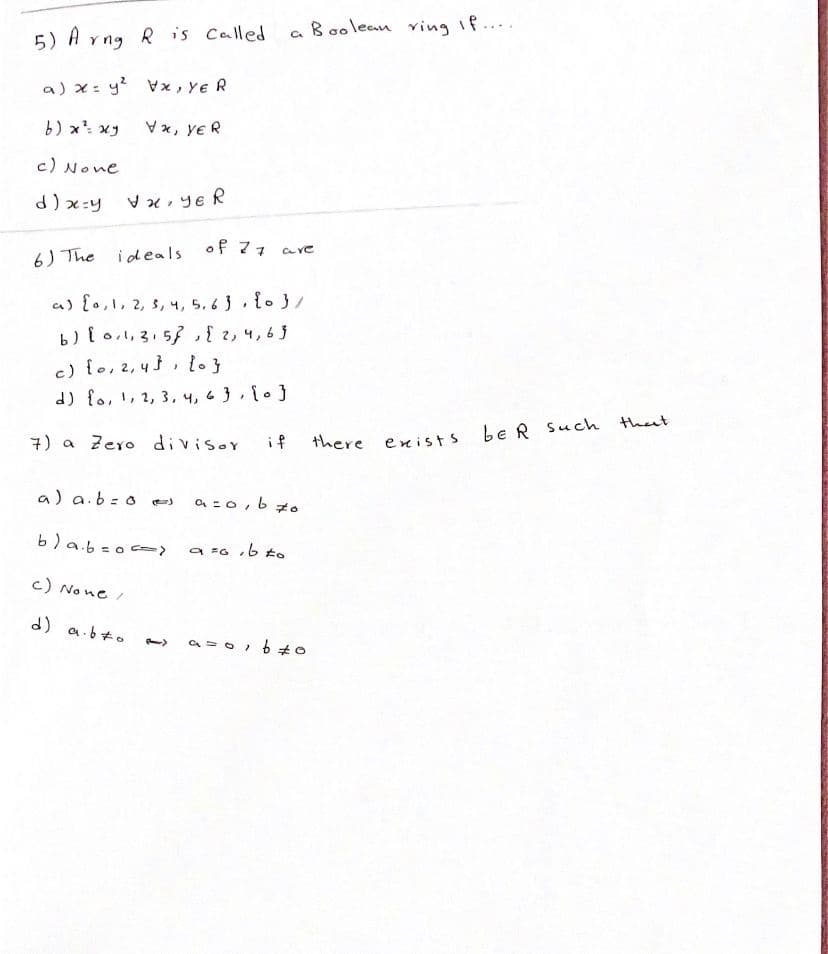 5) A rng R is Called a Boolean ring if....
a) x = y² ∀x, y ∈ R
b) x² = xy ∀x, y ∈ R
c) None
d) x=y ∀x, y ∈ R
6) The ideals of Z7 are
a) {0,1,2,3,4,5,6}, {0} /
b) {0,1,3,5}, {2,4,6}
c) {0,2,4}, {0}
d) {0,1,2,3,4,6}, {0}
7) a Zero divisor if there exists b∈R such that
a) a.b=0 ⇔ a=0, b≠0
b) a.b=0 ⇔ a=0, b≠0
c) None /
d) a.b≠0 ⇔ a=0, b≠0